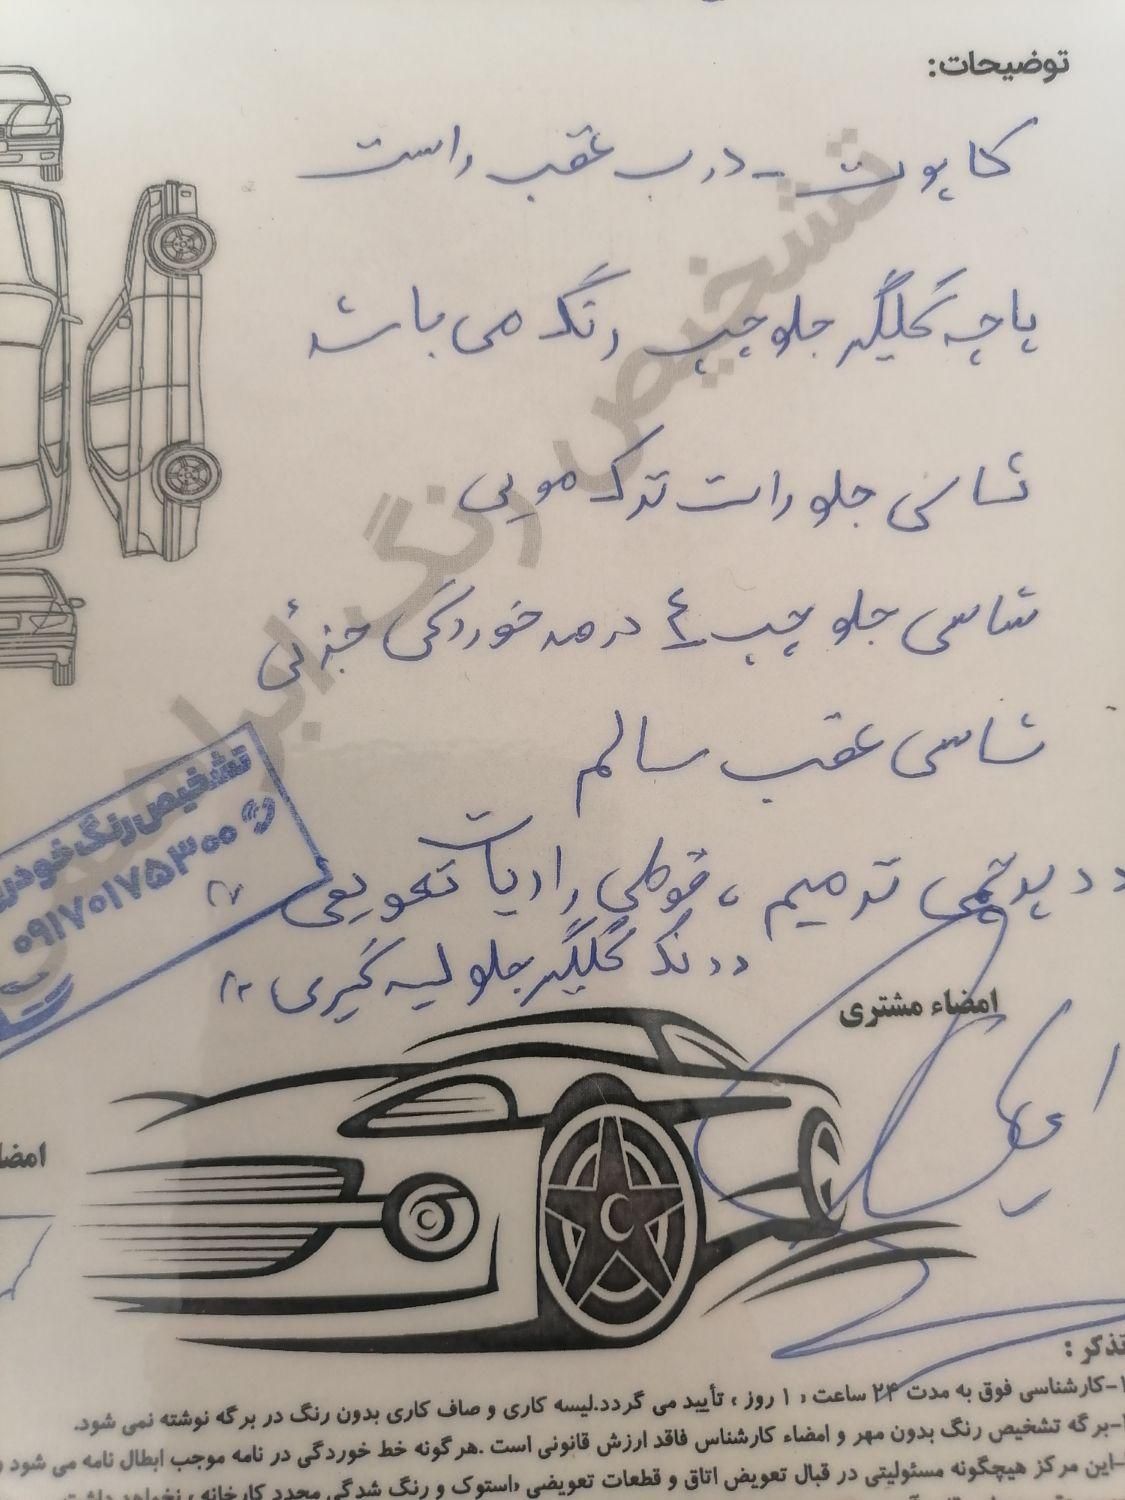 توضیحات:
کاپوت - درب عقب راست
پاچه گلگیر جلو چپ رنگ می باشد
شاسی جلو راست ترک مویی
شاسی جلو چپ ٤ درصد خوردگی جزئی
شاسی عقب سالم
ترمیم ، قوطی رادیات تعویض
گلگیر جلو لیسه گیری
تشخیص رنگ ایران
تشخیص رنگ خودرو
۰۹۱۷۰۱۷۵۳۰۰
امضاء مشتری
امضا
تذکر :
۱-کارشناسی فوق به مدت ۲۴ ساعت ، ۱ روز ، تأیید می گردد.لیسه کاری و صاف کاری بدون رنگ در برگه نوشته نمی شود.
برگه تشخیص رنگ بدون مهر و امضاء کارشناس فاقد ارزش قانونی است .هرگونه خط خوردگی در نامه موجب ابطال نامه می شود و
این مرکز هیچگونه مسئولیتی در قبال تعویض اتاق و قطعات تعویضی ،استوک و رنگ شدگی مجدد کارخانه ، نخواهد داشت